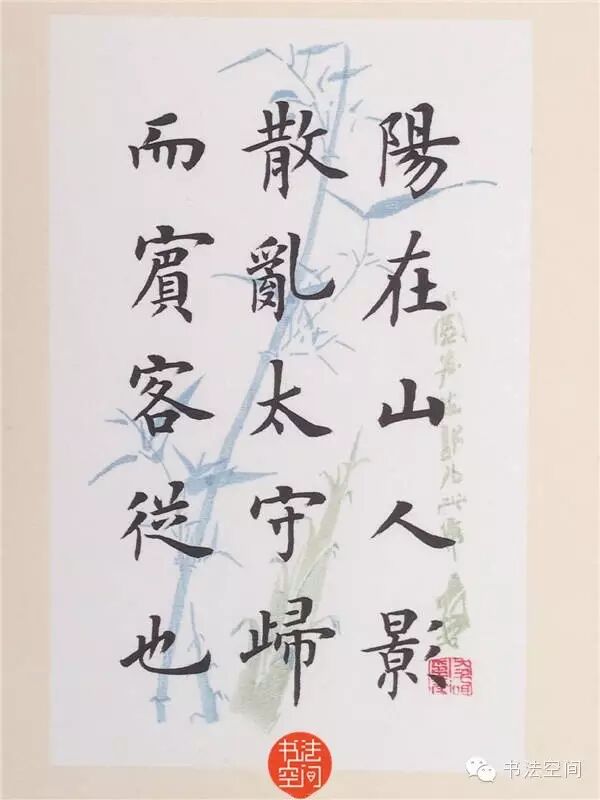 陽在山人影
散亂太守歸
而賓客從也
书法空间
书法空间